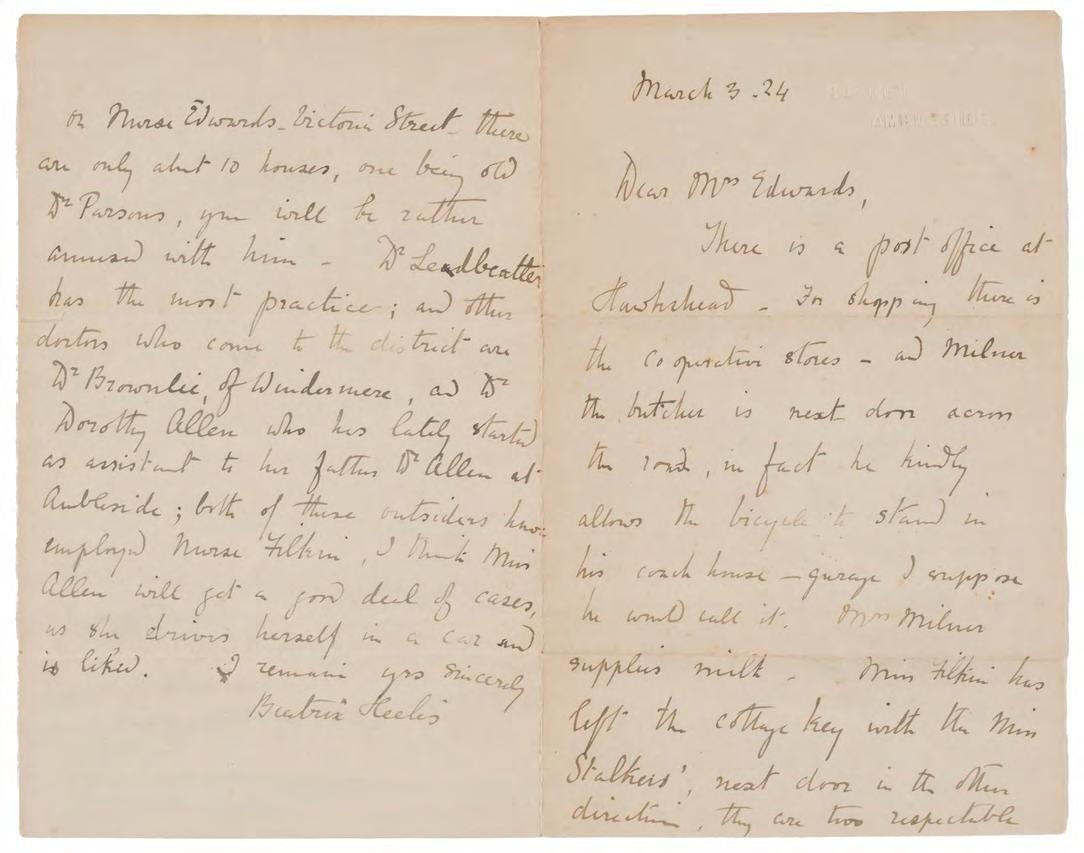 March 3 . 24
AMBLESIDE.
Dear Mrs Edwards,
There is a post office at
Hawkshead - For shopping there is
the cooperative stores - and Milner
the butcher is next door across
the road, in fact he kindly
allows the bicycle to stand in
his coach house - garage I suppose
he would call it. Mrs Milner
supplies milk - Miss Filkin has
left the cottage key with the Miss
Stalkers', next door in the other
direction, they are two respectable
on Nurse Edwards - Victoria Street - there
are only abut 10 houses, one being old
Dr Parsons, you will be rather
amused with him - Dr Leadbeatter
has the most practice; and other
doctors who come to the district are
Dr Brownlie, of Windermere, and Dr
Dorothy Allen who has lately started
as assistant to her father Dr Allen at
Ambleside; both of these outsiders have
employed Nurse Filkin, I think Miss
Allen will get a good deal of cases,
as she drives herself in a car and
is liked. I remain yrs sincerely
Beatrix Heelis